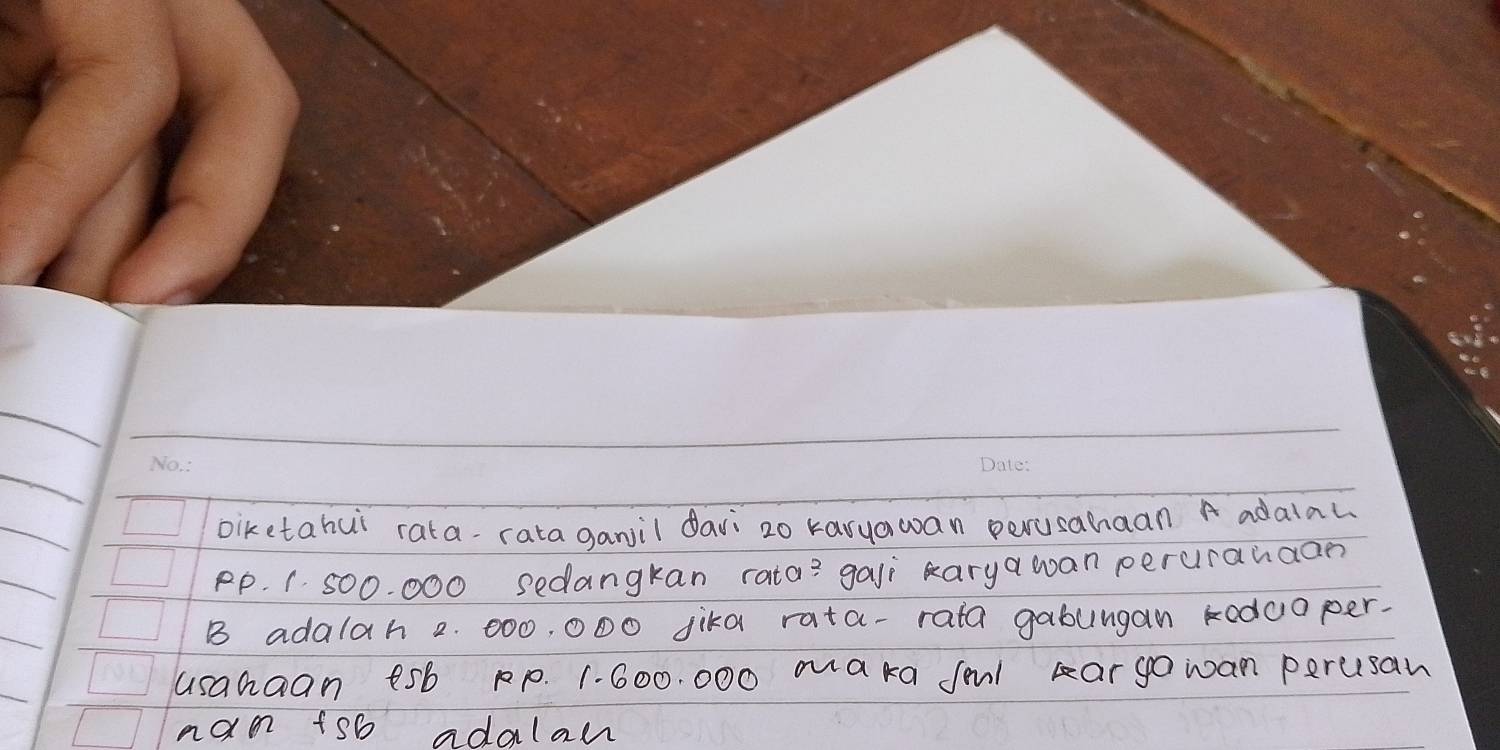 No.: Date:
Diketahui rata-rata ganjil dari 20 karyawan perusahaan A adalah
RP. 1.500.000 sedangkan rata² gaji karyawan perusahaan
B adalah 2.000.000 jika rata-rata gabungan kedua per-
usahaan tsb RP. 1.600.000 maka Jml kargawan perusah
naan tsb adalah